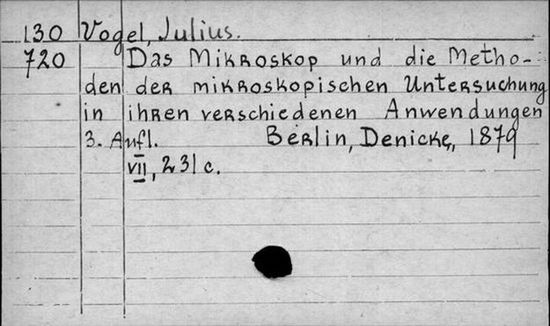 130 Vogel, Julius.
720 Das Mikroskop und die Metho-
den der mikroskopischen Untersuchung
in ihren verschiedenen Anwendungen
3. Aufl. Berlin, Denicke, 1879
VII, 231 c.